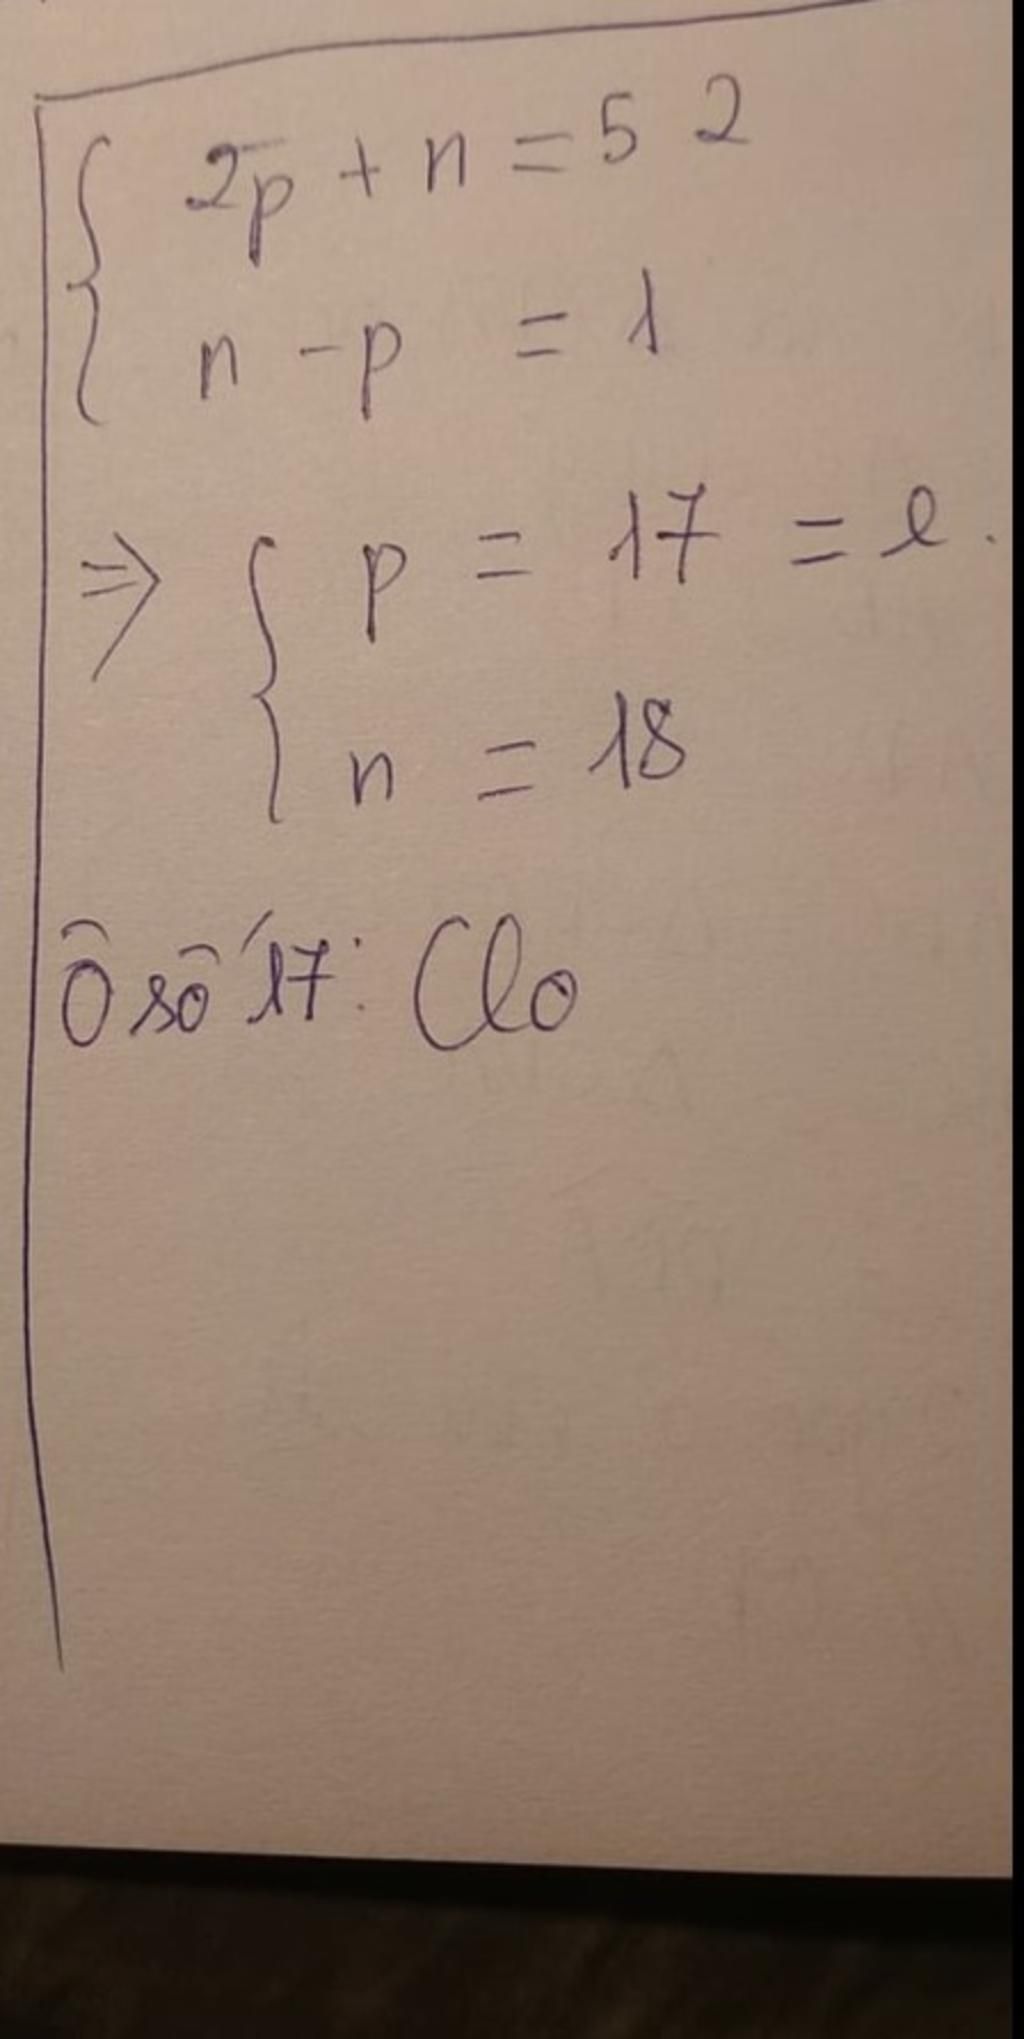 2p + n = 52
n - p = 1
⇒ p = 17 = e.
n = 18
Ô số 17: Clo